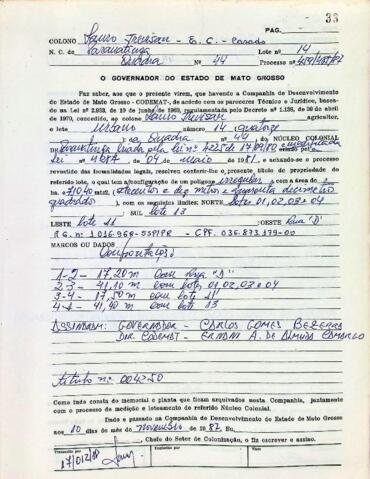 33
PAG.
COLONO Lauro Trevisan - E. C. - Casado
N. C. de Paranatinga Lote nº 14
Quadra nº 44 Processo nº
O GOVERNADOR DO ESTADO DE MATO GROSSO
Faz saber, aos que o presente virem, que havendo a Companhia de Desenvolvimento
do Estado de Mato Grosso - CODEMAT-, de acordo com os pareceres Técnico e Jurídico, basea-
dos na Lei nº 2.953, de 10 de junho de 1969, regulamentada pelo Decreto nº 1.138, de 20 de abril
de 1970, concedido, ao colono Lauro Trevisan, agricultor,
o lote urbano número 14 quatorze
na Quadra nº 44 DO NÚCLEO COLONIAL
DE Paranatinga criada pela Lei nº 4225 de 17.09.80 modificada
Lei nº 4387A de 04 maio de 1981, e achando-se o processo
revestido das formalidades legais, resolveu conferir-lhe o presente título de propriedade do
referido lote, o qual tem a configuração de um polígono irregular com a área de
ha. 710,40 mtrs (setecentos e dez metros e quarenta decímetro
quadrado), com os seguintes limites: NORTE lotes 01, 02, 03 e 04
SUL lote 13
LESTE lote 11 OESTE Rua "D"
R.G. nº 1.016.968-SSP/PR - CPF. 036.833.179-00
MARCOS OU DADOS
Confrontação
1-2 - 17,20 m com Rua "D"
2-3 - 41,10 m com lotes 01, 02, 03 e 04
3-4 - 17,50 m com lote 11
4-1 - 41,40 m com lote 13
ASSINARAM: GOVERNADOR - CARLOS GOMES BEZERRA
DIR. CODEMAT - ERNANI A. DE ALMEIDA CAMARGO
Título nº 004250
Como tudo consta do memorial e planta que ficam arquivados nesta Companhia, juntamente
com o processo de medição e loteamento do referido Núcleo Colonial.
Dado e passado na Companhia de Desenvolvimento do Estado de Mato Grosso
aos 10 dias do mês de novembro de 1987. Eu,
, Chefe do Setor de Colonização, o fiz escrever e assino.
Transcrito por
Visto